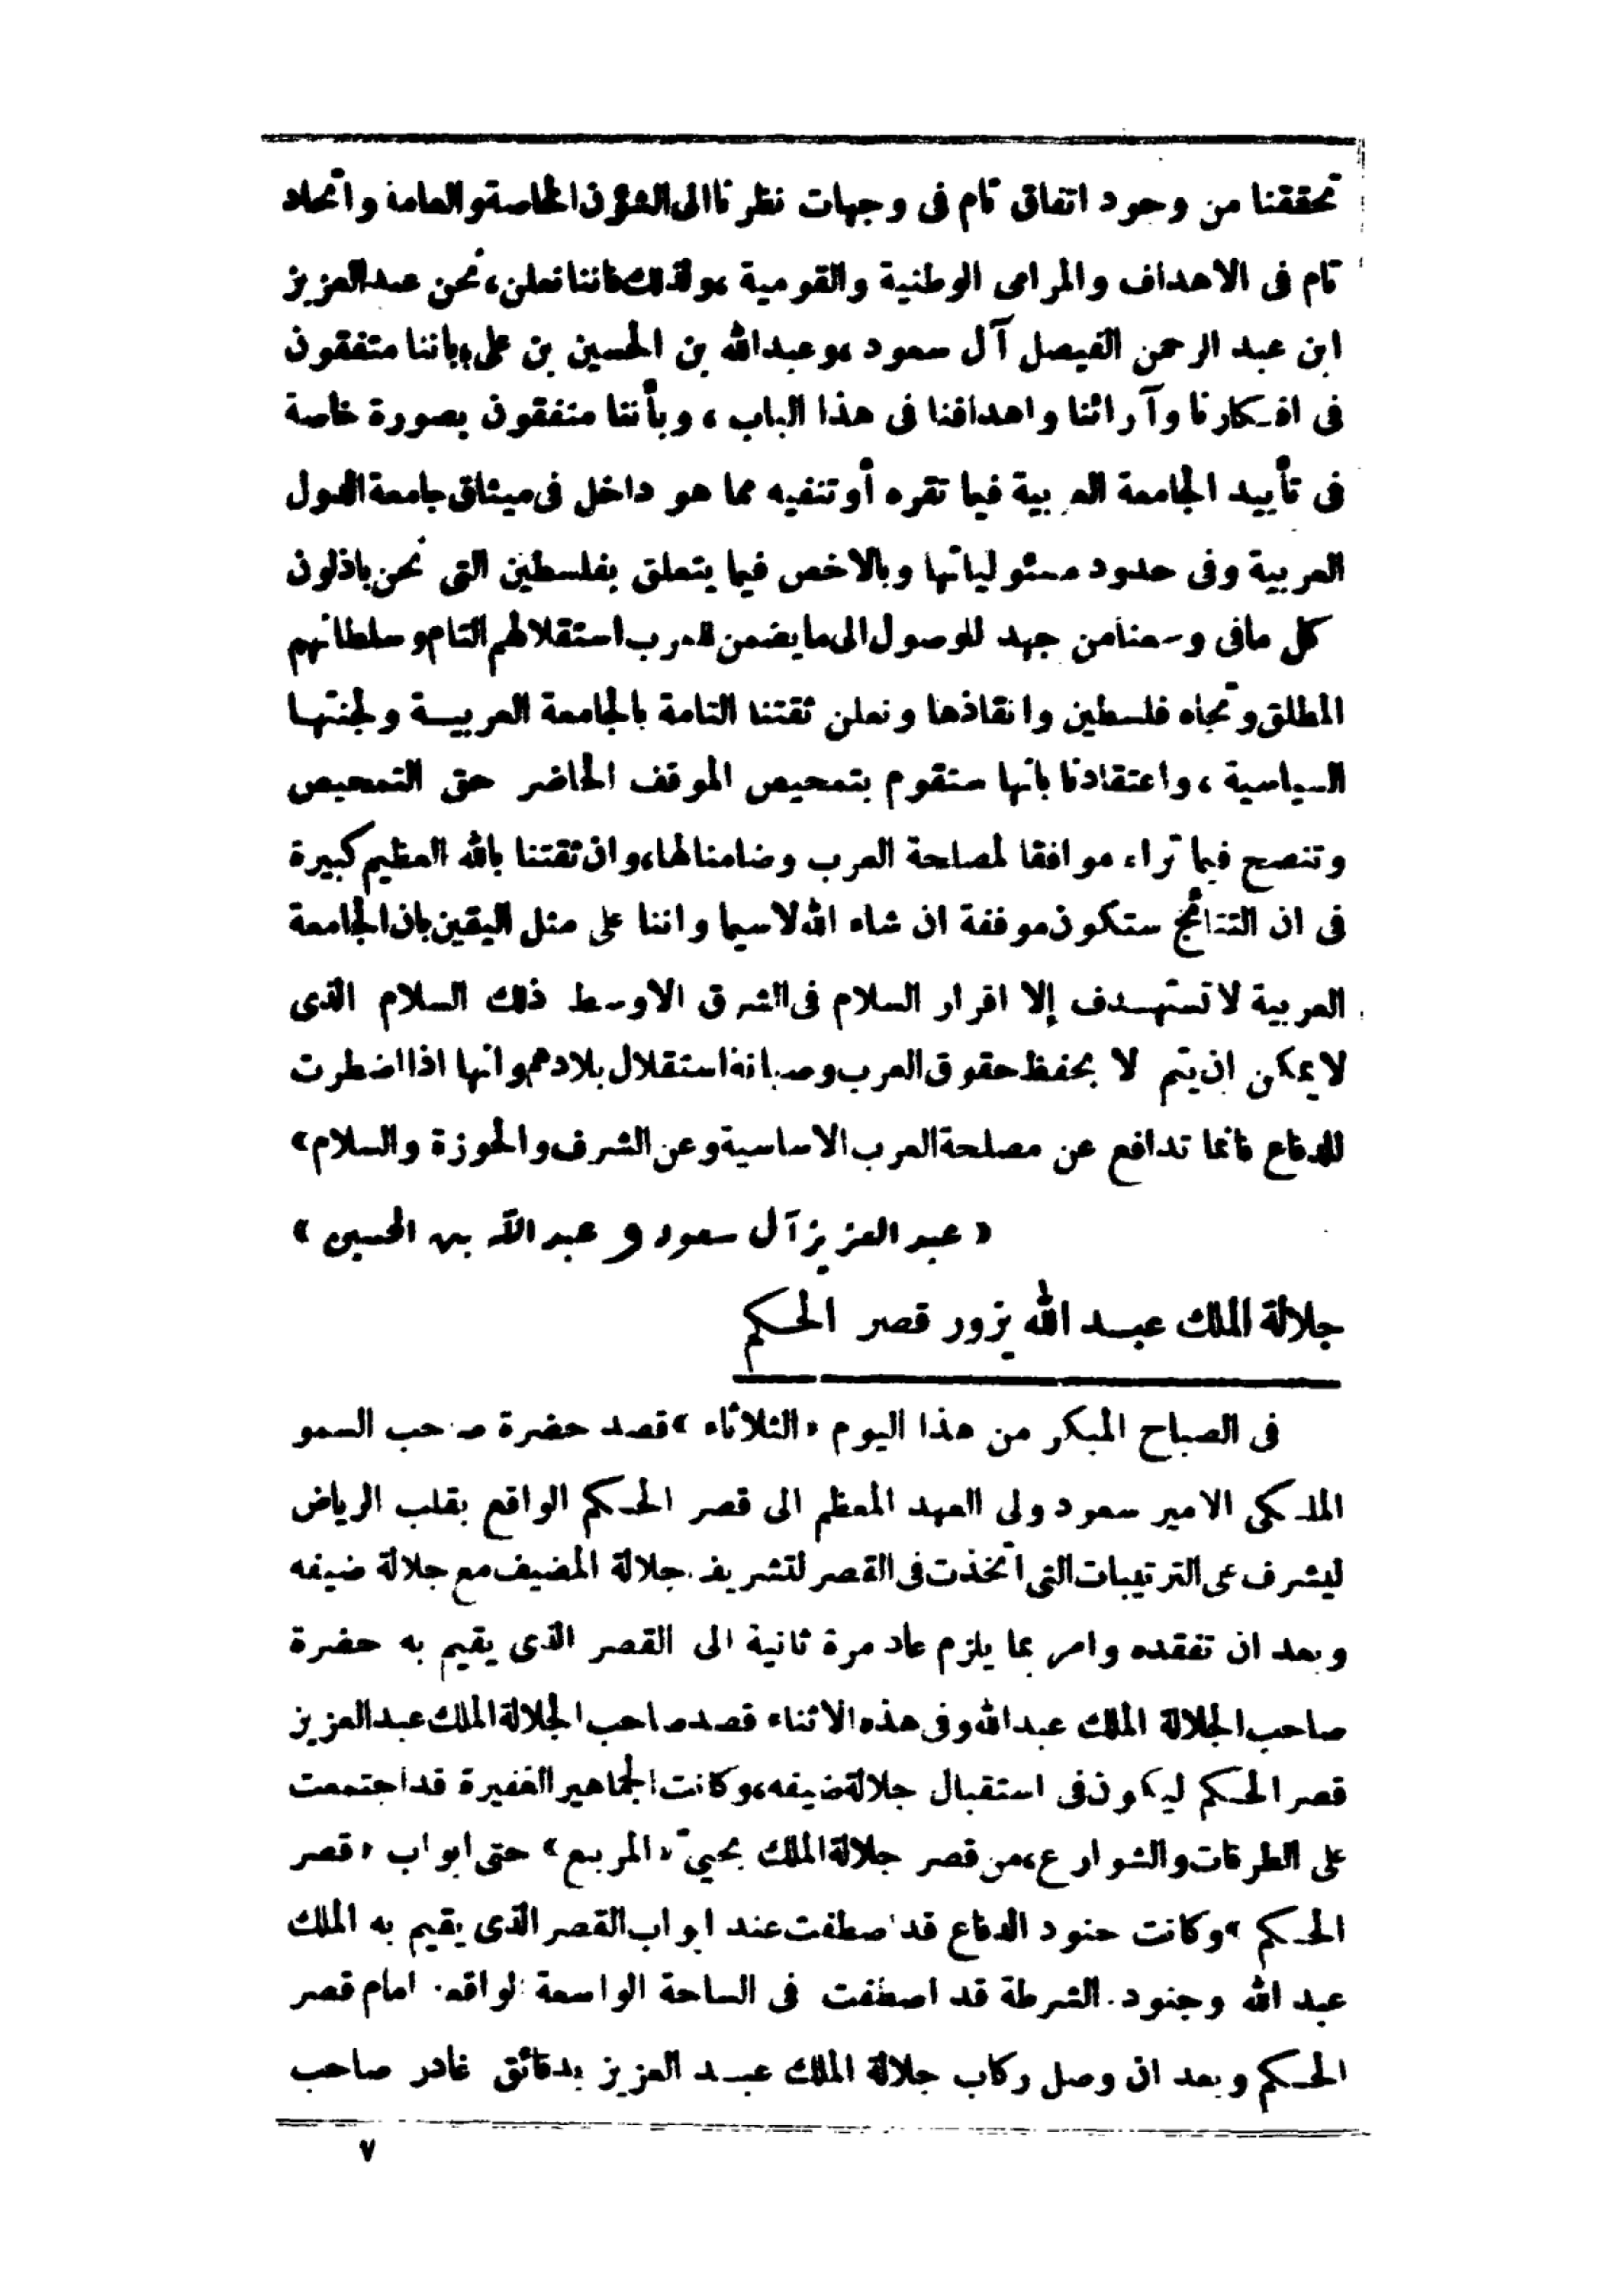 تحققنا من وجود اتفاق تام فى وجهات نظرنا الى الشؤون الخاصة والعامة واتحاد
تام فى الاهداف والمرامى الوطنية والقومية ، ولذلك فاننا نعلن ، نحن عبد العزيز
ابن عبد الرحمن الفيصل آل سعود ، وعبد الله بن الحسين بن على ، باننا متفقون
فى افكارنا وآرائنا واهدافنا فى هذا الباب ، وبأننا متفقون بصورة خاصة
فى تأييد الجامعة العربية فيما تقره أو تنفيه مما هو داخل فى ميثاق جامعة الدول
العربية وفى حدود مسئولياتها وبالاخص فيما يتعلق بفلسطين التى نحن باذلون
كل مافى وسعنا من جهد للوصول الى ما يضمن للعرب استقلالهم التام وسلطانهم
المطلق وتجاه فلسطين وانقاذها ونعلن ثقتنا التامة بالجامعة العربية ولجنتها
السياسية ، واعتقادنا بأنها ستقوم بتمحيص الموقف الحاضر حق التمحيص
وتنصح فيما تراه موافقا لمصلحة العرب وضامنا لها ، وان ثقتنا بالله العظيم كبيرة
فى ان النتائج ستكون موفقة ان شاء الله لاسيما واننا على مثل اليقين بان الجامعة
العربية لا تستهدف إلا اقرار السلام فى الشرق الاوسط ذلك السلام الذى
لا يمكن ان يتم لا بحفظ حقوق العرب وصيانة استقلال بلادهم وانها اذا اضطرت
للدفاع فانما تدافع عن مصلحة العرب الاساسية وعن الشرف والحوزة والسلام »
« عبد العزيز آل سعود و عبد الله بن الحسين »
جلالة الملك عبد الله يزور قصر الحكم
فى الصباح المبكر من هذا اليوم « الثلاثاء » قصد حضرة صاحب السمو
الملكى الامير سعود ولى العهد المعظم الى قصر الحكم الواقع بقلب الرياض
ليشرف على الترتيبات التى اتخذت فى القصر لتشريف جلالة المضيف مع جلالة ضيفه
وبعد ان تفقده وامر بما يلزم عاد مرة ثانية الى القصر الذى يقيم به حضرة
صاحب الجلالة الملك عبد الله وفى هذه الاثناء قصد صاحب الجلالة الملك عبد العزيز
قصر الحكم ليكون فى استقبال جلالة ضيفه ، وكانت الجماهير الغفيرة قد اجتمعت
على الطرقات والشوارع ، من قصر جلالة الملك بحيىّ « المربع » حتى ابواب « قصر
الحكم » وكانت جنود الدفاع قد اصطفت عند ابواب القصر الذى يقيم به الملك
عبد الله وجنود الشرطة قد اصطفت فى الساحة الواسعة الواقعة امام قصر
الحكم وبعد ان وصل ركاب جلالة الملك عبد العزيز بدقائق غادر صاحب
٧